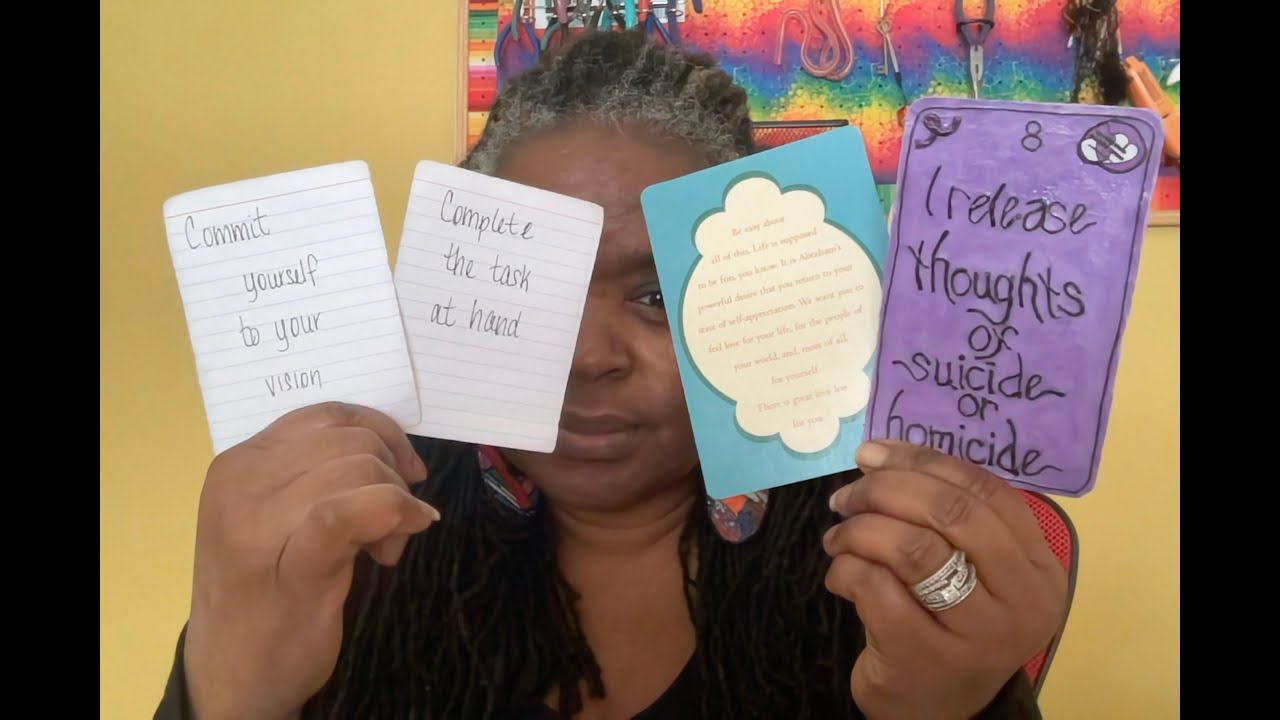 Commit
yourself
to your
vision
Complete
the task
at hand
Be easy about
all of this. Life is supposed
to be fun, you know. It is Abraham's
powerful desire that you return to your
state of self-appreciation. We want you to
feel love for your life, for the people of
your world, and, most of all
for yourself.
There is great love here
for you
8
I release
thoughts
of
suicide
or
homicide